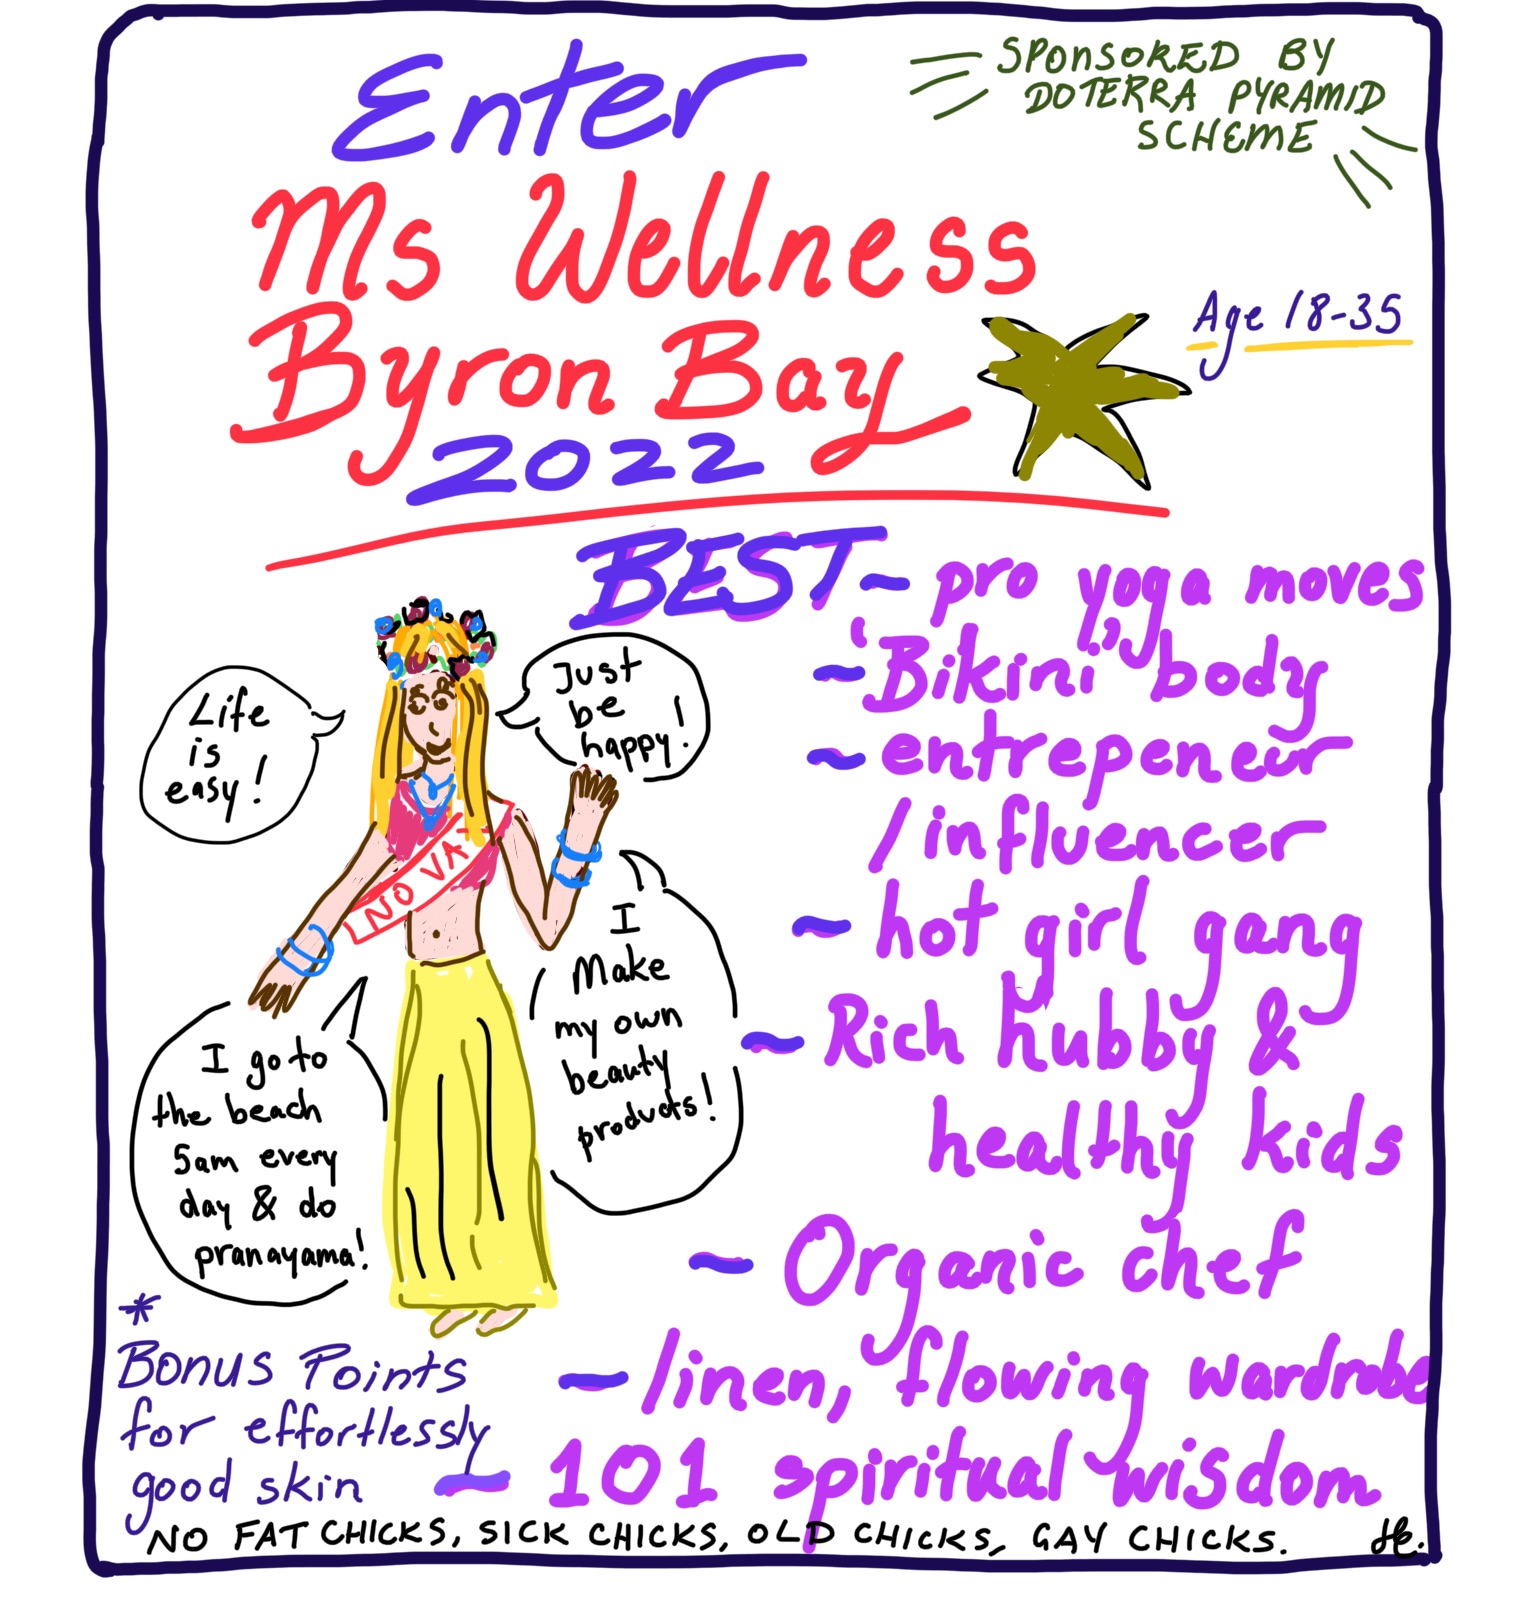 Enter
SPONSORED BY
DOTERRA PYRAMID
SCHEME
Ms Wellness
Byron Bay
2022
Age 18-35
BEST ~ pro yoga moves
~ 'Bikini' body
~ entrepeneur
/influencer
~ hot girl gang
~ Rich hubby &
healthy kids
~ Organic chef
~ linen, flowing wardrobe
~ 101 spiritual wisdom
Life
is
easy!
Just
be
happy!
NO VA
I
Make
my own
beauty
products!
I go to
the beach
5am every
day & do
pranayama!
*
Bonus Points
for effortlessly
good skin
NO FAT CHICKS, SICK CHICKS, OLD CHICKS, GAY CHICKS.